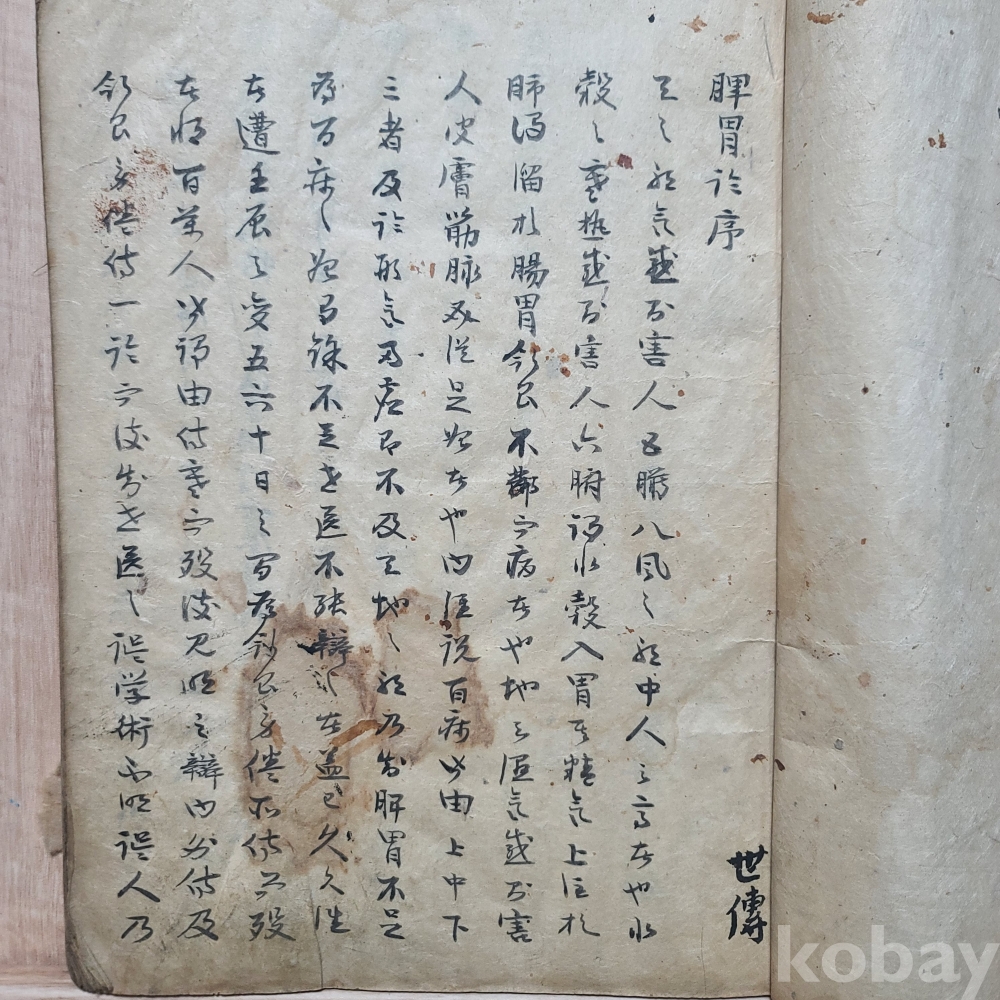 脾胃論序
天之邪氣感則害人五臟八風之邪中人之高者也水
穀之寒熱感則害人六腑謂水穀入胃其精氣上注於
肺濁溜於腸胃飲食不節而病者也地之湿氣感則害
人皮膚筋脉必從足始者也内経說百病皆由上中下
三者及論形氣兩虛即不及天地之邪乃知脾胃不足
爲百病之始有餘不足世医不能辯之者盖已久矣往
者遭壬辰之變五六十日之間爲飲食勞倦所傷而歿
者將百萬人皆謂由傷寒而歿後見明之辯内外傷及
飲食勞倦傷一論而後知世医之誤学術不明誤人乃
世傳
kobay